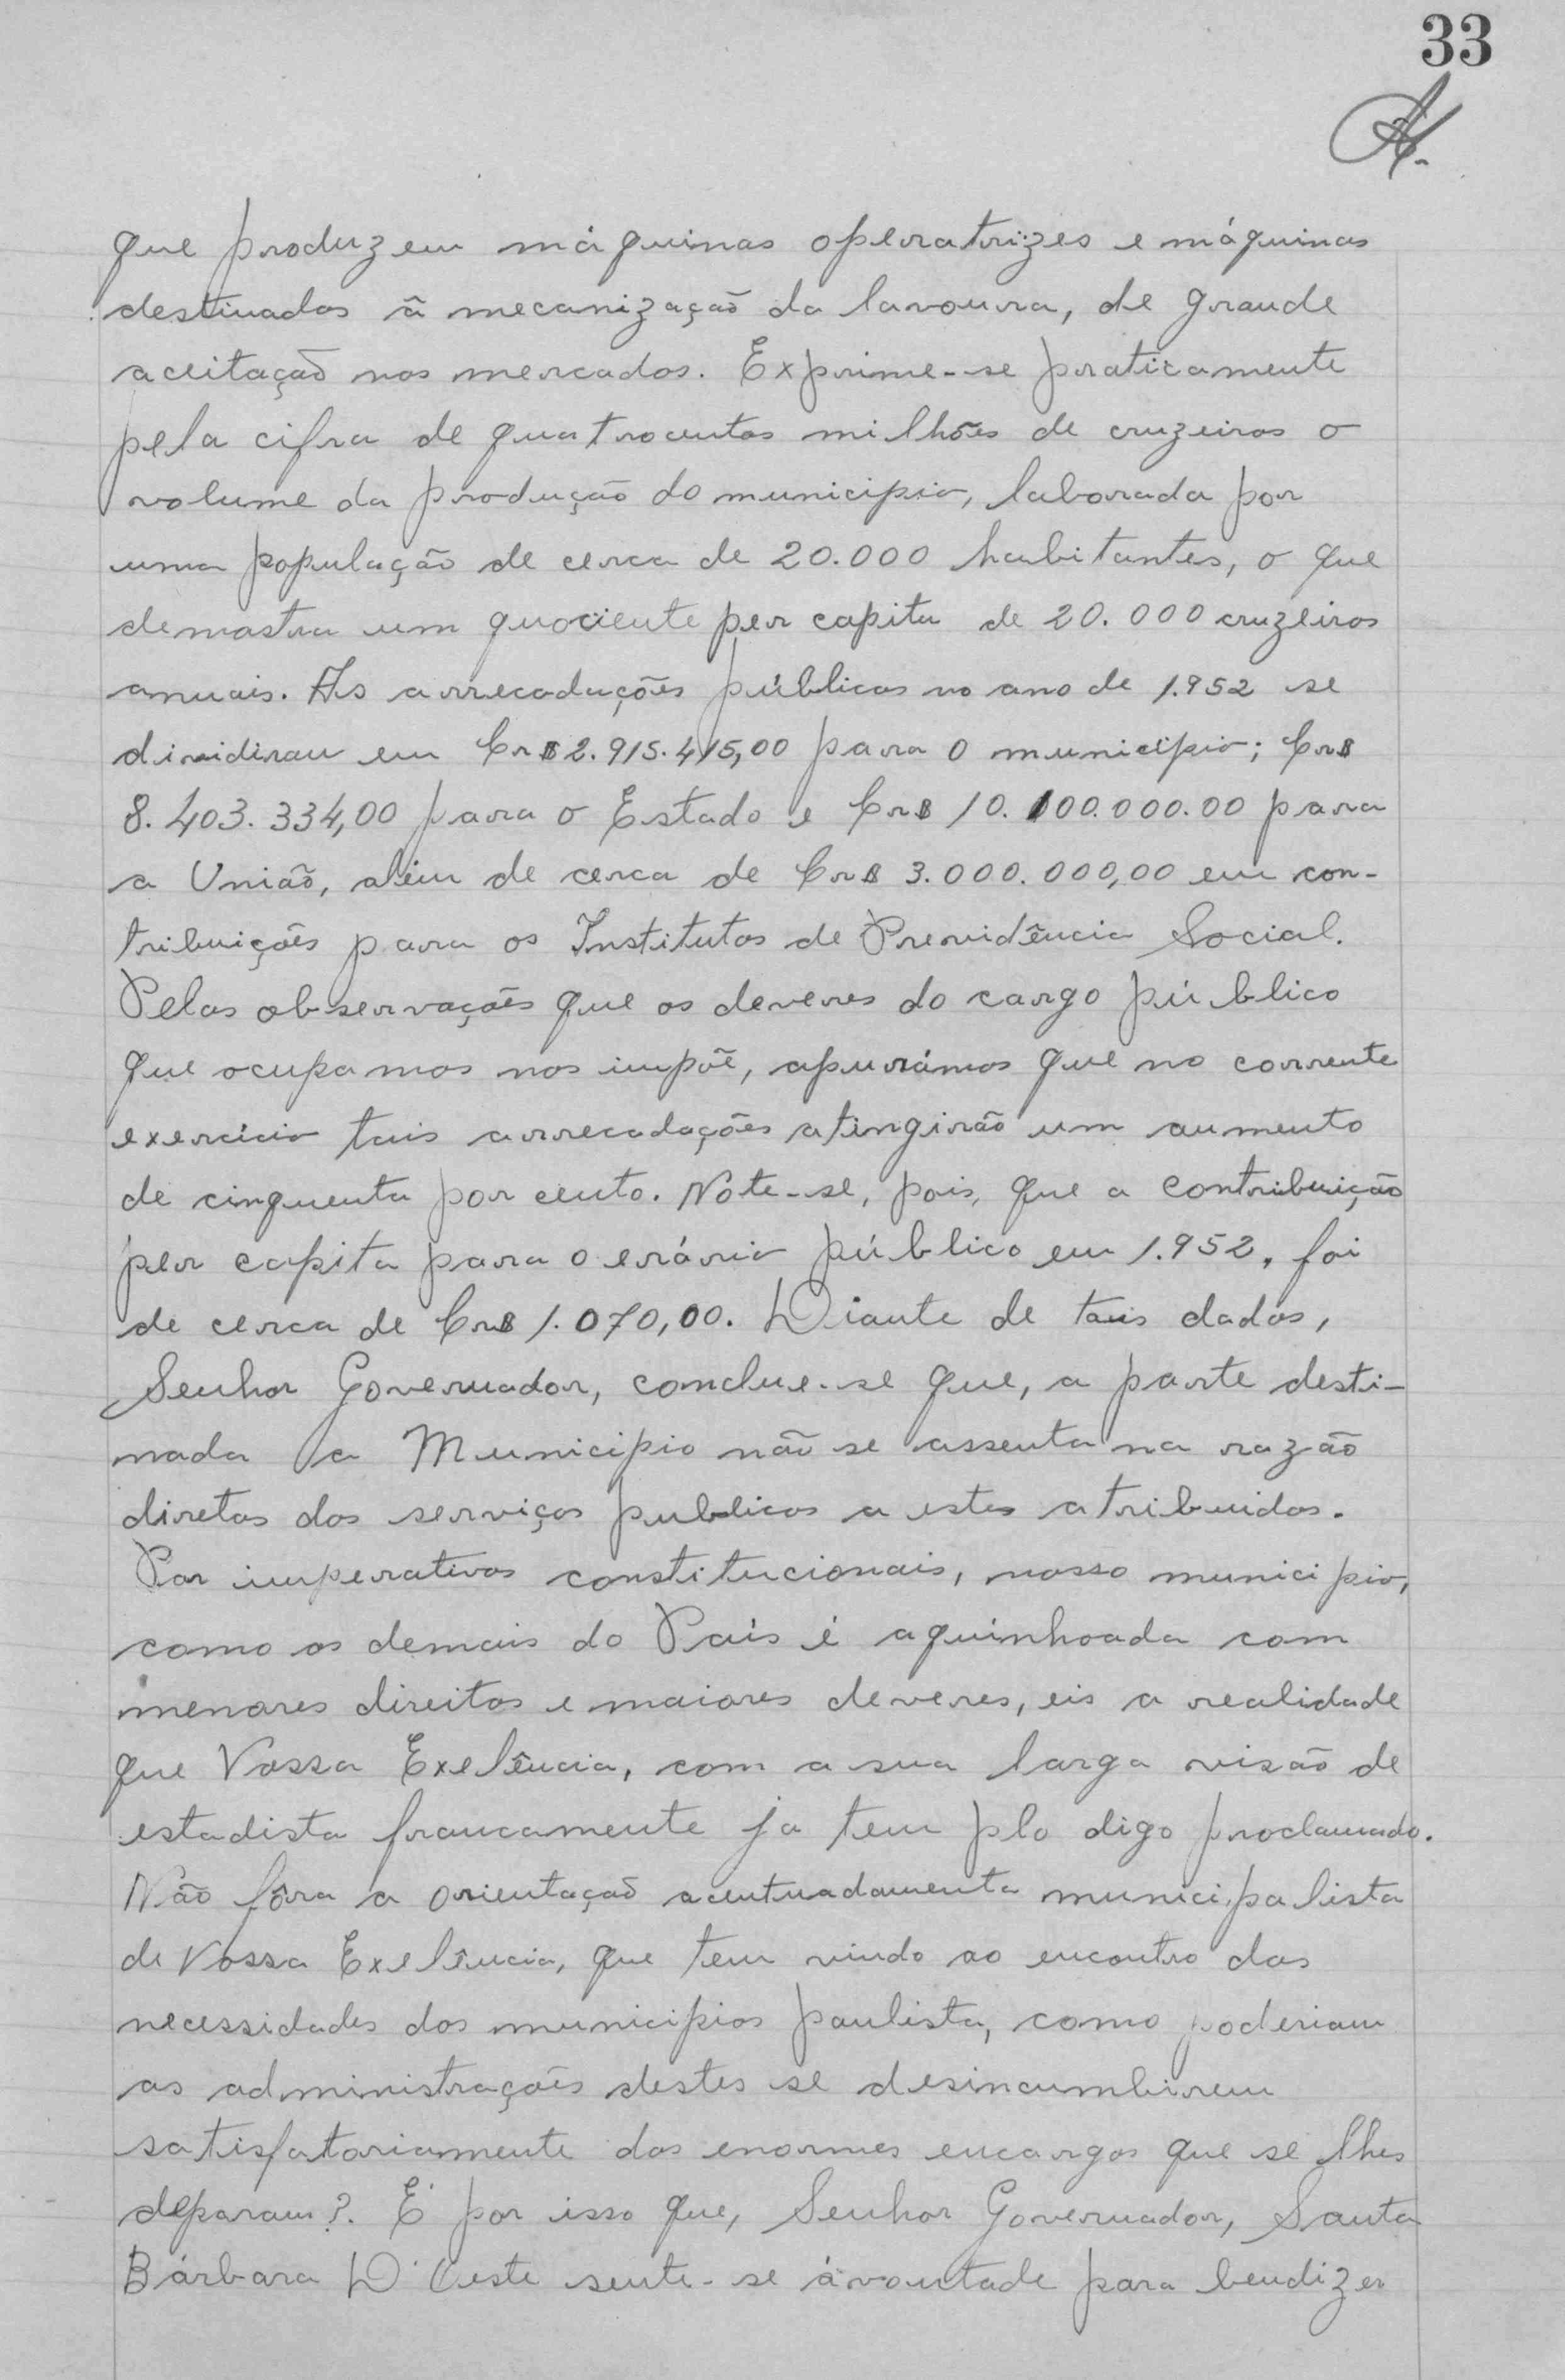 33
que produzem máquinas operatrizes e máquinas
destinadas à mecanização da lavoura, de grande
aceitação nos mercados. Exprime-se praticamente
pela cifra de quatrocentos milhões de cruzeiros o
volume da produção do municipio, laborada por
uma população de cerca de 20.000 habitantes, o que
demostra um quociente per capita de 20.000 cruzeiros
anuais. As arrecadações públicas no ano de 1.952 se
dividiram em Cr$ 2.915.415,00 para o municipio; Cr$
8.403.334,00 para o Estado e Cr$ 10.100.000.00 para
a União, além de cerca de Cr$ 3.000.000,00 em con-
tribuições para os Institutos de Previdência Social.
Pelas observações que os deveres do cargo público
que ocupamos nos impõe, apurámos que no corrente
exercício tais arrecadações atingirão um aumento
de cinquenta por cento. Note-se, pois, que a contribuição
per capita para o erário público em 1.952, foi
de cerca de Cr$ 1.070,00. Diante de tais dados,
Senhor Governador, conclue-se que, a parte desti-
nada a Municipio não se assenta na razão
diretas dos serviços publicos a estes atribuidos.
Por imperativos constitucionais, nosso municipio,
como os demais do País é aquinhoada com
menores direitos e maiores deveres, eis a realidade
que Vossa Exelência, com a sua larga visão de
estadista francamente ja tem plo digo proclamado.
Não fôra a orientação acentuadamente municipalista
de Vossa Exelência, que tem vindo ao encontro das
necessidades dos municipios paulista, como poderiam
as administrações destes se desincumbirem
satisfatoriamente dos enormes encargos que se lhes
deparam?. É por isso que, Senhor Governador, Santa
Bárbara D'Oeste sente-se ávontade para bendizer